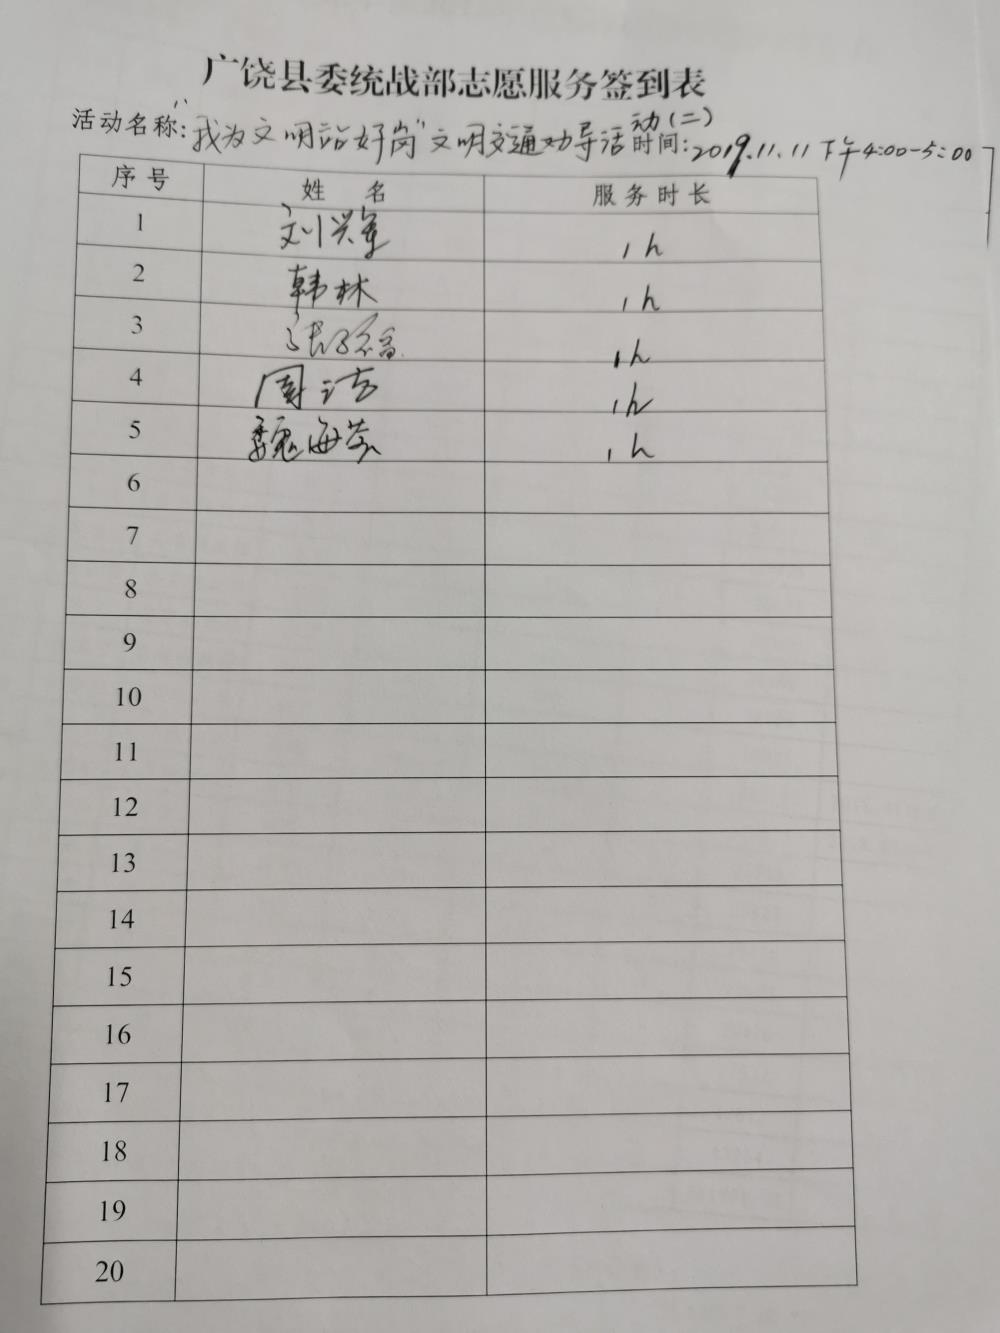 广饶县委统战部志愿服务签到表
活动名称:"我为文明站好岗"文明交通劝导活动(二) 时间:2019.11.11 下午4:00-5:00
序号 姓 名 服务时长
1 刘兴军 1h
2 韩林 1h
3 张 1h
4 周洁 1h
5 魏海芬 1h
6
7
8
9
10
11
12
13
14
15
16
17
18
19
20